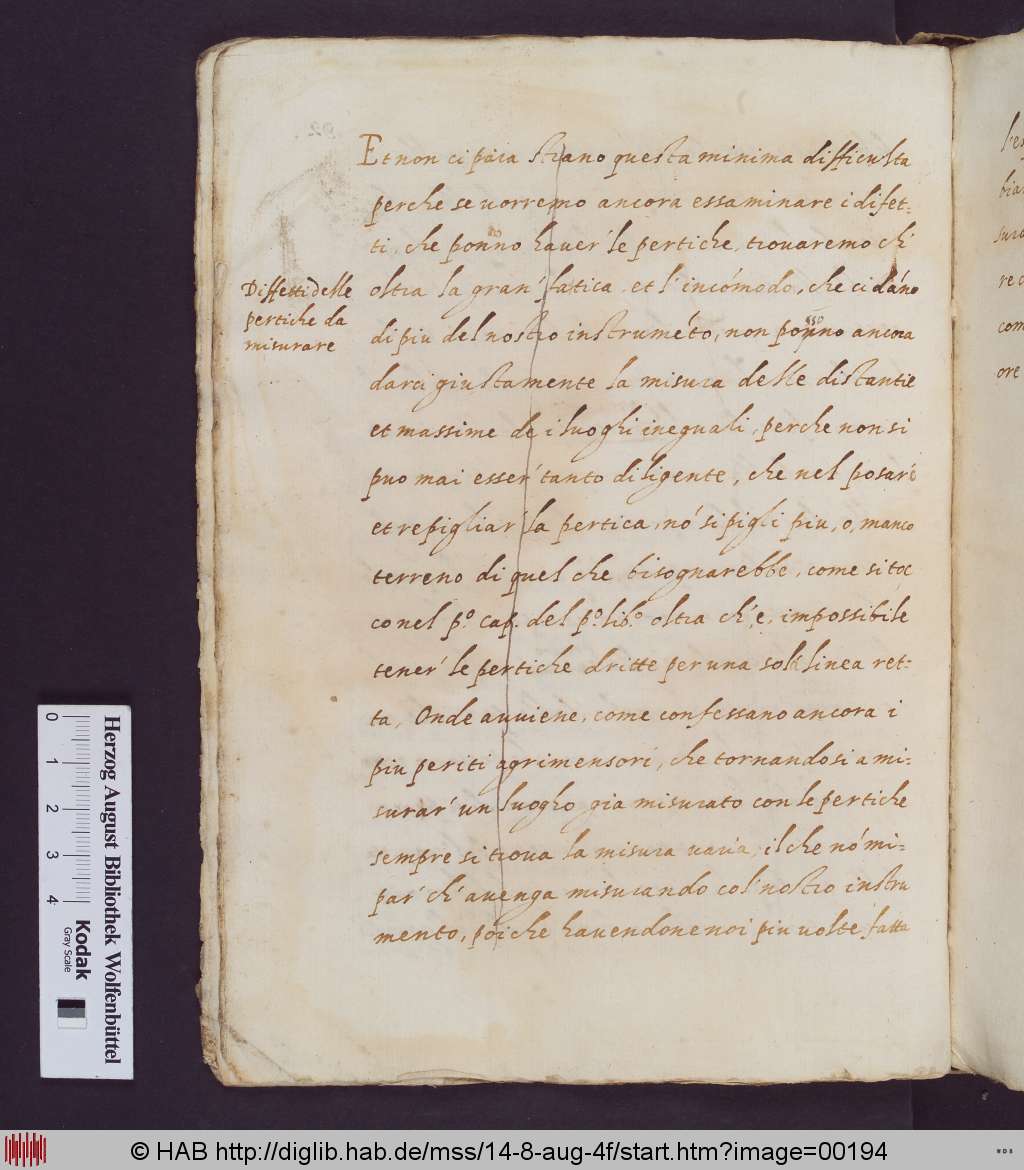 Et non ci paia strano questa minima difficulta
perche se uorremo ancora essaminare i difet-
ti, che ponno hauer' le pertiche, trouaremo ch'
Diffetti delle
pertiche da
misurare
oltra la gran' fattica et l'incómodo, che ci dáno
di piu del nostro instruméto, non ponno ancora
darci giustamente la misura delle distantie
et massime de i luoghi ineguali, perche non si
puo mai esser' tanto diligente, che nel posare
et repigliar' la pertica, nó si pigli piu, o, manco
terreno di quel che bisognarebbe, come si toc
co nel p.º cap. del p.º lib.º oltra ch'è, impossibile
tener' le pertiche dritte per una sola linea ret-
ta, Onde auuiene, come confessano ancora i
piu periti agrimensori, che tornandosi a mi-
surar' un luogho gia misurato con le pertiche
sempre si troua la misura uaria, il che nó mi-
par' ch'auenga misurando col' nostro instru
mento, poi che hauendone noi piu uolte fatta
Herzog August Bibliothek Wolfenbüttel
Kodak
Gray Scale
0 1 2 3 4
© HAB http://diglib.hab.de/mss/14-8-aug-4f/start.htm?image=00194